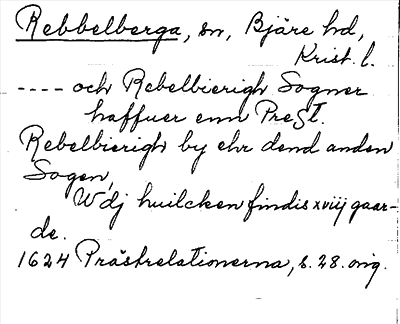 Rebbelberga, sn, Bjäre hd,
Krist. l.
---- och Rebelbierigh Sogner
haffuer enn Prest.
Rebelbierigh by ehr dend anden
Sogen,
Wdj huilcken findis xviij gaar-
de.
1624 Prästrelationerna, s. 28. orig.